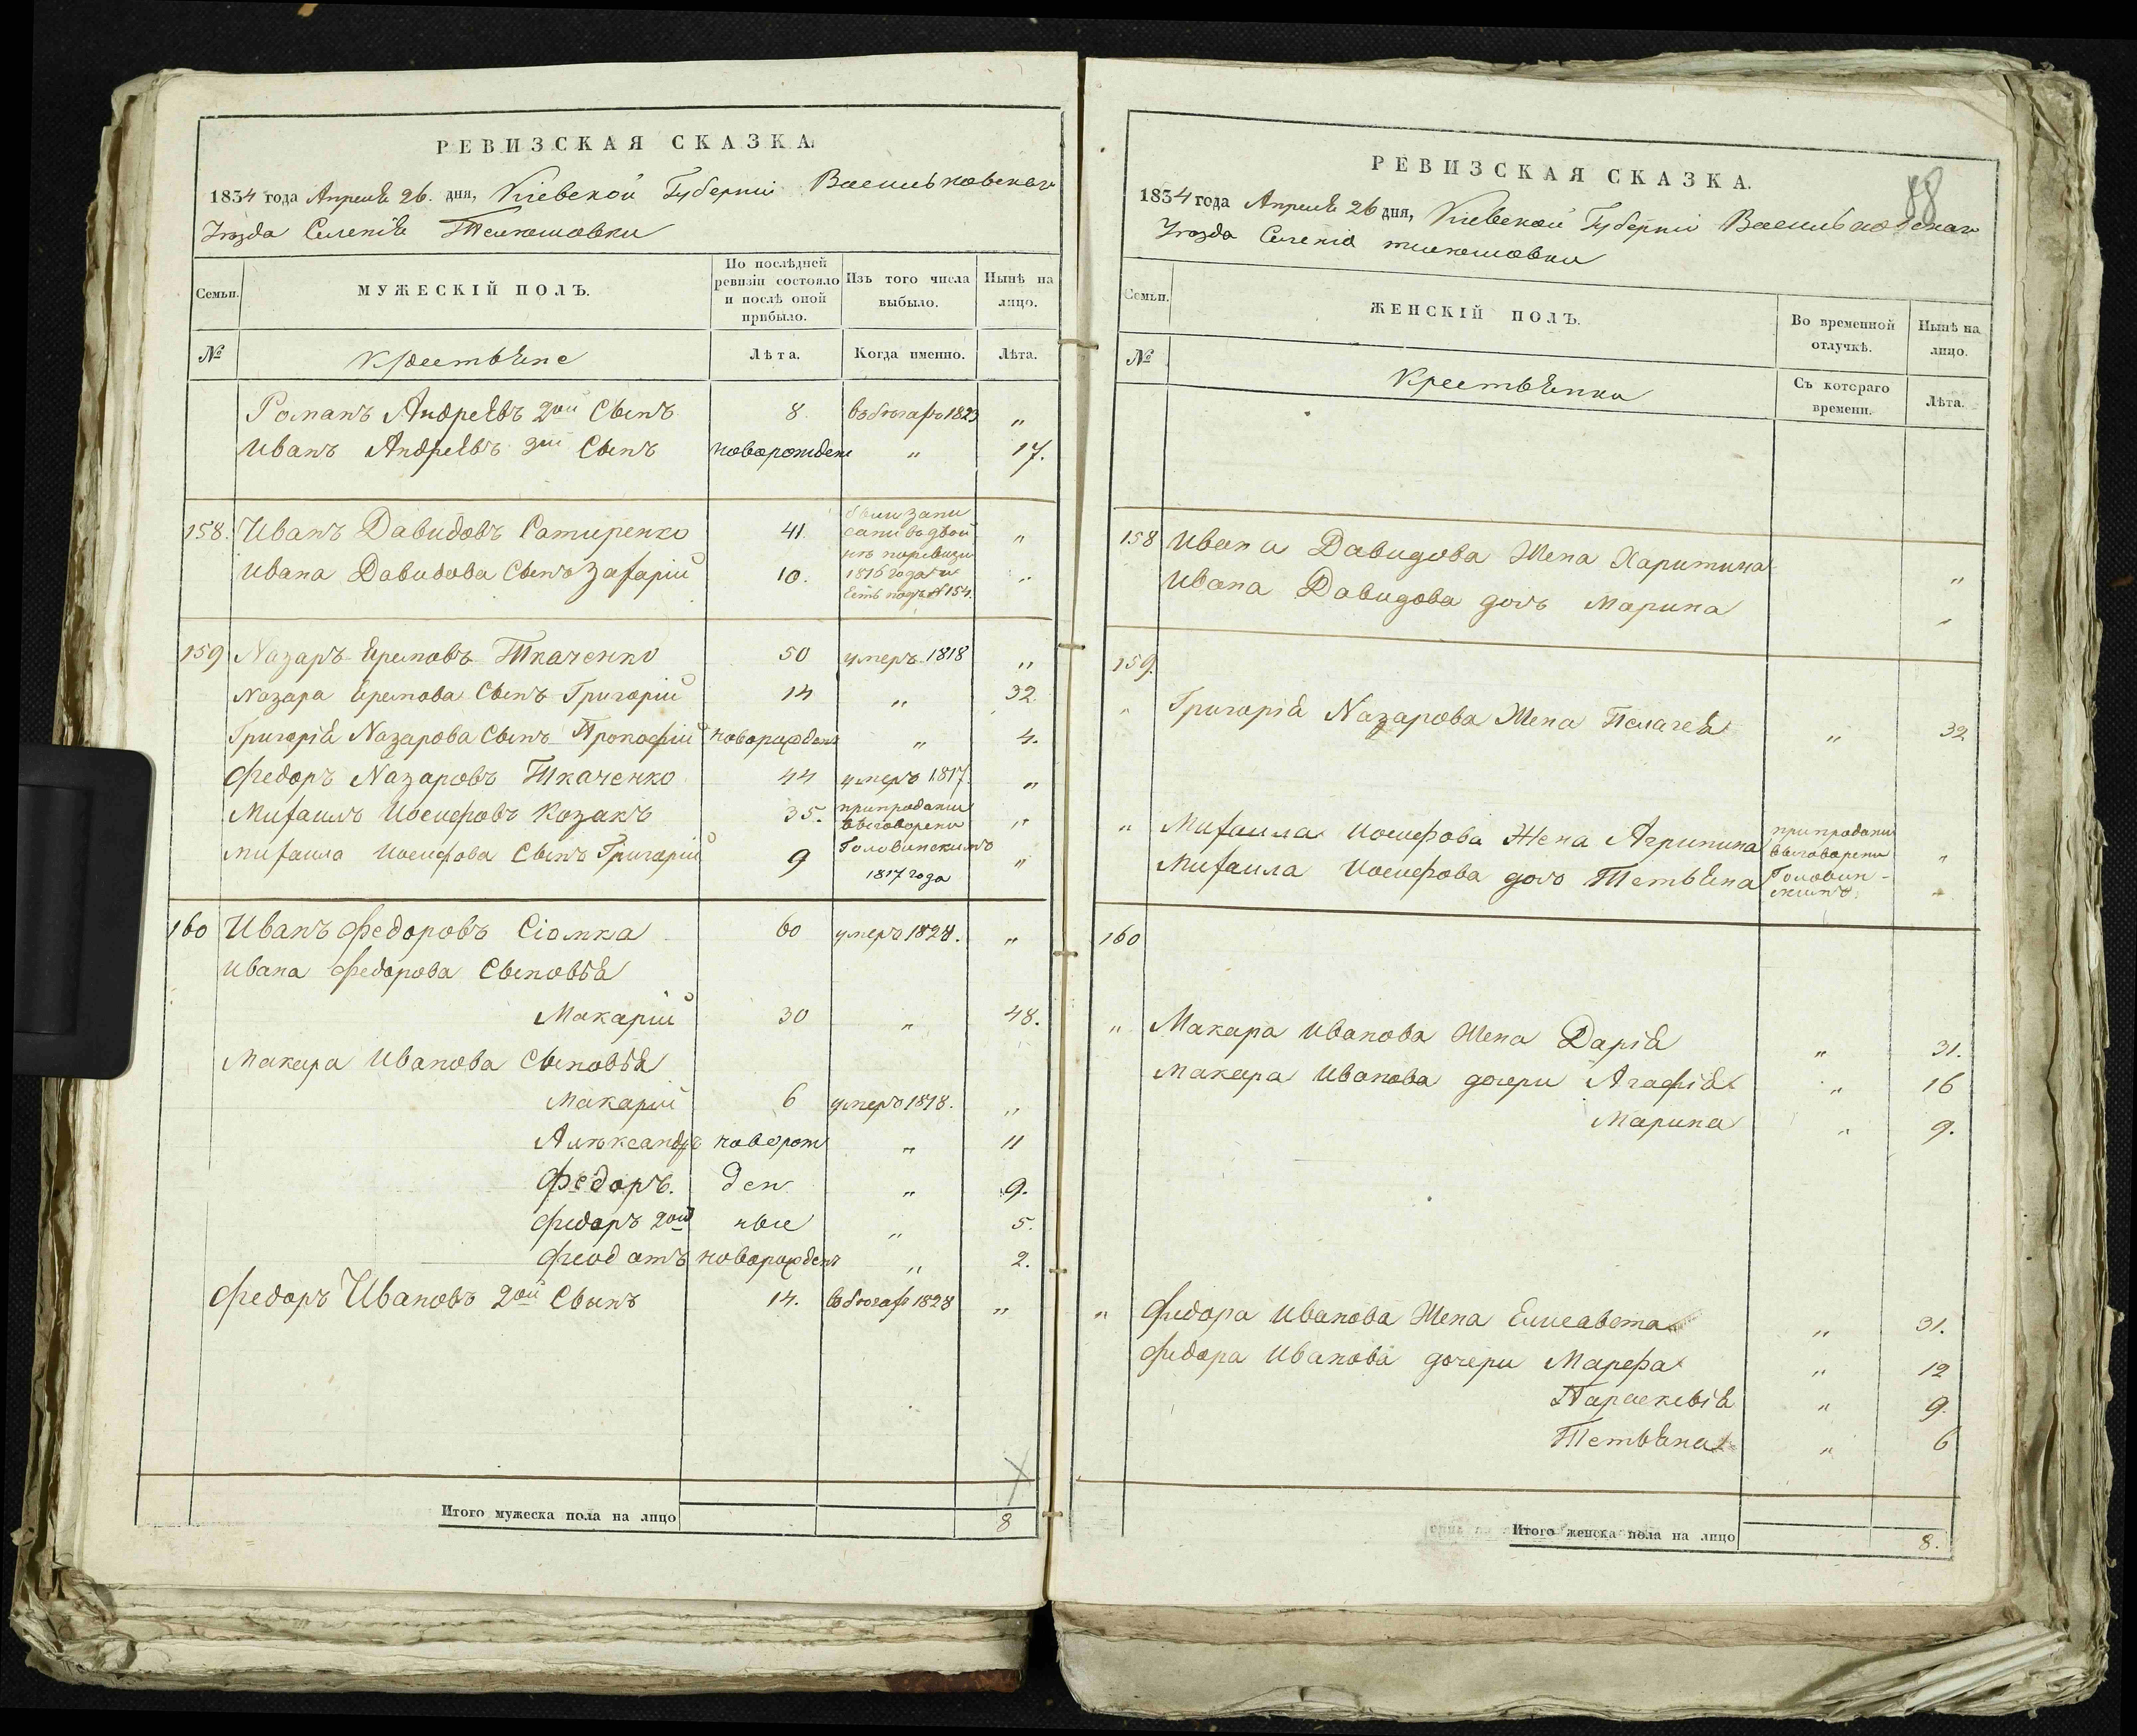 РЕВИЗСКАЯ СКАЗКА.
1834 года Апреля 26. дня, Кіевской Губерніи Васильковскаго
Уѣзда Селенія Телюшовки
Семьи.
МУЖЕСКІЙ ПОЛЪ.
По послѣдней ревизіи состояло и послѣ оной прибыло.
Изъ того числа выбыло.
Нынѣ на лицо.
№
Крестьяне
Лѣта.
Когда именно.
Лѣта.
Романъ Андреевъ 2ой Сынъ 8. въ бѣгахъ 1823 „
Иванъ Андреевъ 3ій Сынъ новорожден „ 17.
158. Иванъ Давидовъ Ратиренко 41 „
Ивана Давидова Сынъ Захарій 10. „
были запи
сани въ двой
нѣ по ревизіи
1816 года и
есть подъ № 154.
159 Назаръ Ереповъ Ткаченко 50 умеръ 1818 „
Назара Ерепова Сынъ Григорій 14 „ 32
Григорія Назарова Сынъ Прокофій новорожденъ „ 4.
Федоръ Назаровъ Ткаченко 44 умеръ 1817. „
Михаилъ Иосифовъ Козакъ 35. „
Михаила Иосифова Сынъ Григорій 9 „
при продажи
выговорени
Головинскимъ
1817 года
160 Иванъ Федоровъ Сіомка 60 умеръ 1828. „
Ивана Федорова Сыновья
Макарій 30 „ 48.
Макара Иванова Сыновья
Макарій 6 умеръ 1818. „
Александръ новорож „ 11
Федоръ. ден „ 9.
Федоръ 2ой ные „ 5.
Феодотъ новорожденъ „ 2.
Федоръ Ивановъ 2ой Сынъ 14. въ бѣгахъ 1828 „
Итого мужеска пола на лицо 8
88
РЕВИЗСКАЯ СКАЗКА.
1834 года Апреля 26 дня, Кіевской Губерніи Васильковскаго
Уѣзда Селенія Телюшовки
Семьи.
ЖЕНСКІЙ ПОЛЪ.
Во временной отлучкѣ.
Нынѣ на лицо.
№
Крестьянки
Съ котораго времени.
Лѣта.
158 Ивана Давидова Жена Харитина „
Ивана Давидова дочь Марина „
159.
„ Григорія Назарова Жена Пелагея „ 32
„ Михаила Иосифова Жена Агрипина „
Михаила Иосифова дочь Тетьяна „
при продажи
выговорени
Головин-
скимъ.
160
„ Макара Иванова Жена Дарія „ 31.
Макара Иванова дочери Агафія „ 16
Марина „ 9.
„ Федора Иванова Жена Елисавета „ 31.
Федора Иванова дочери Марфа „ 12
Параскевія „ 9.
Тетьяна „ 6
Итого женска пола на лицо 8.